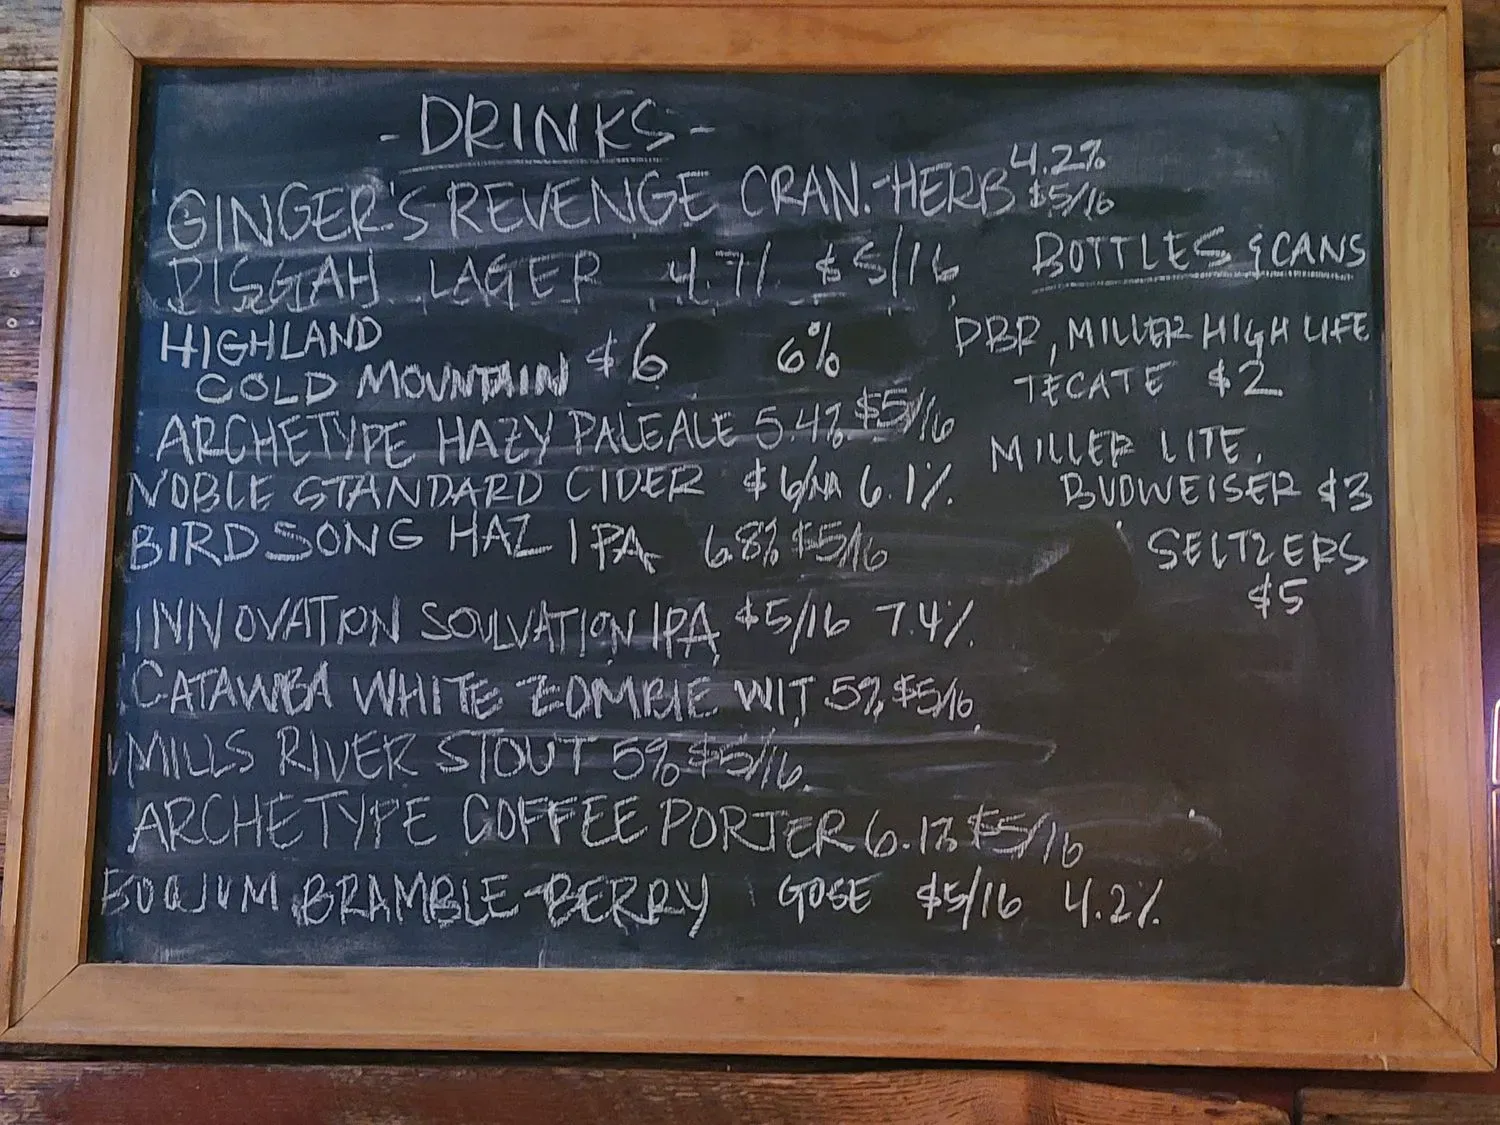 - DRINKS -
GINGER'S REVENGE CRAN.-HERB 4.2% $5/16
PISGAH LAGER 4.7% $5/16
HIGHLAND
COLD MOUNTAIN $6 6%
ARCHETYPE HAZY PALE ALE 5.4% $5/16
NOBLE STANDARD CIDER $6/NA 6.1%
BIRDSONG HAZ IPA 6.8% $5/16
INNOVATION SOULVATION IPA $5/16 7.4%
CATAWBA WHITE ZOMBIE WIT 5% $5/16
MILLS RIVER STOUT 5% $5/16
ARCHETYPE COFFEE PORTER 6.1% $5/16
BOOJUM BRAMBLE-BERRY GOSE $5/16 4.2%
BOTTLES & CANS
PBR, MILLER HIGH LIFE
TECATE $2
MILLER LITE,
BUDWEISER $3
SELTZERS
$5